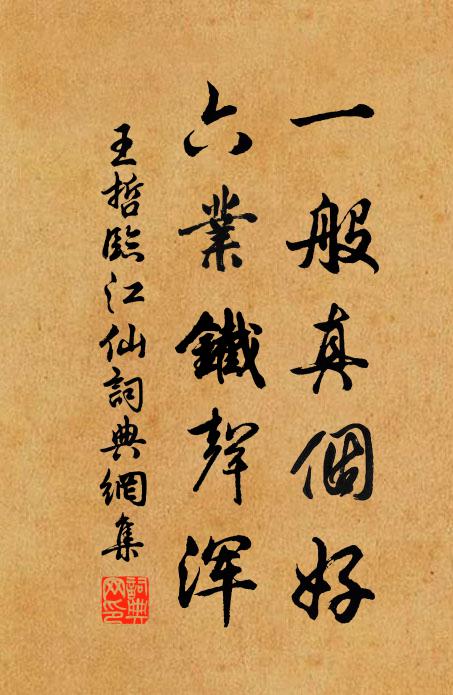 一般真個好
六業鐵聲渾
王哲臨江仙詞典網集
詞典网印